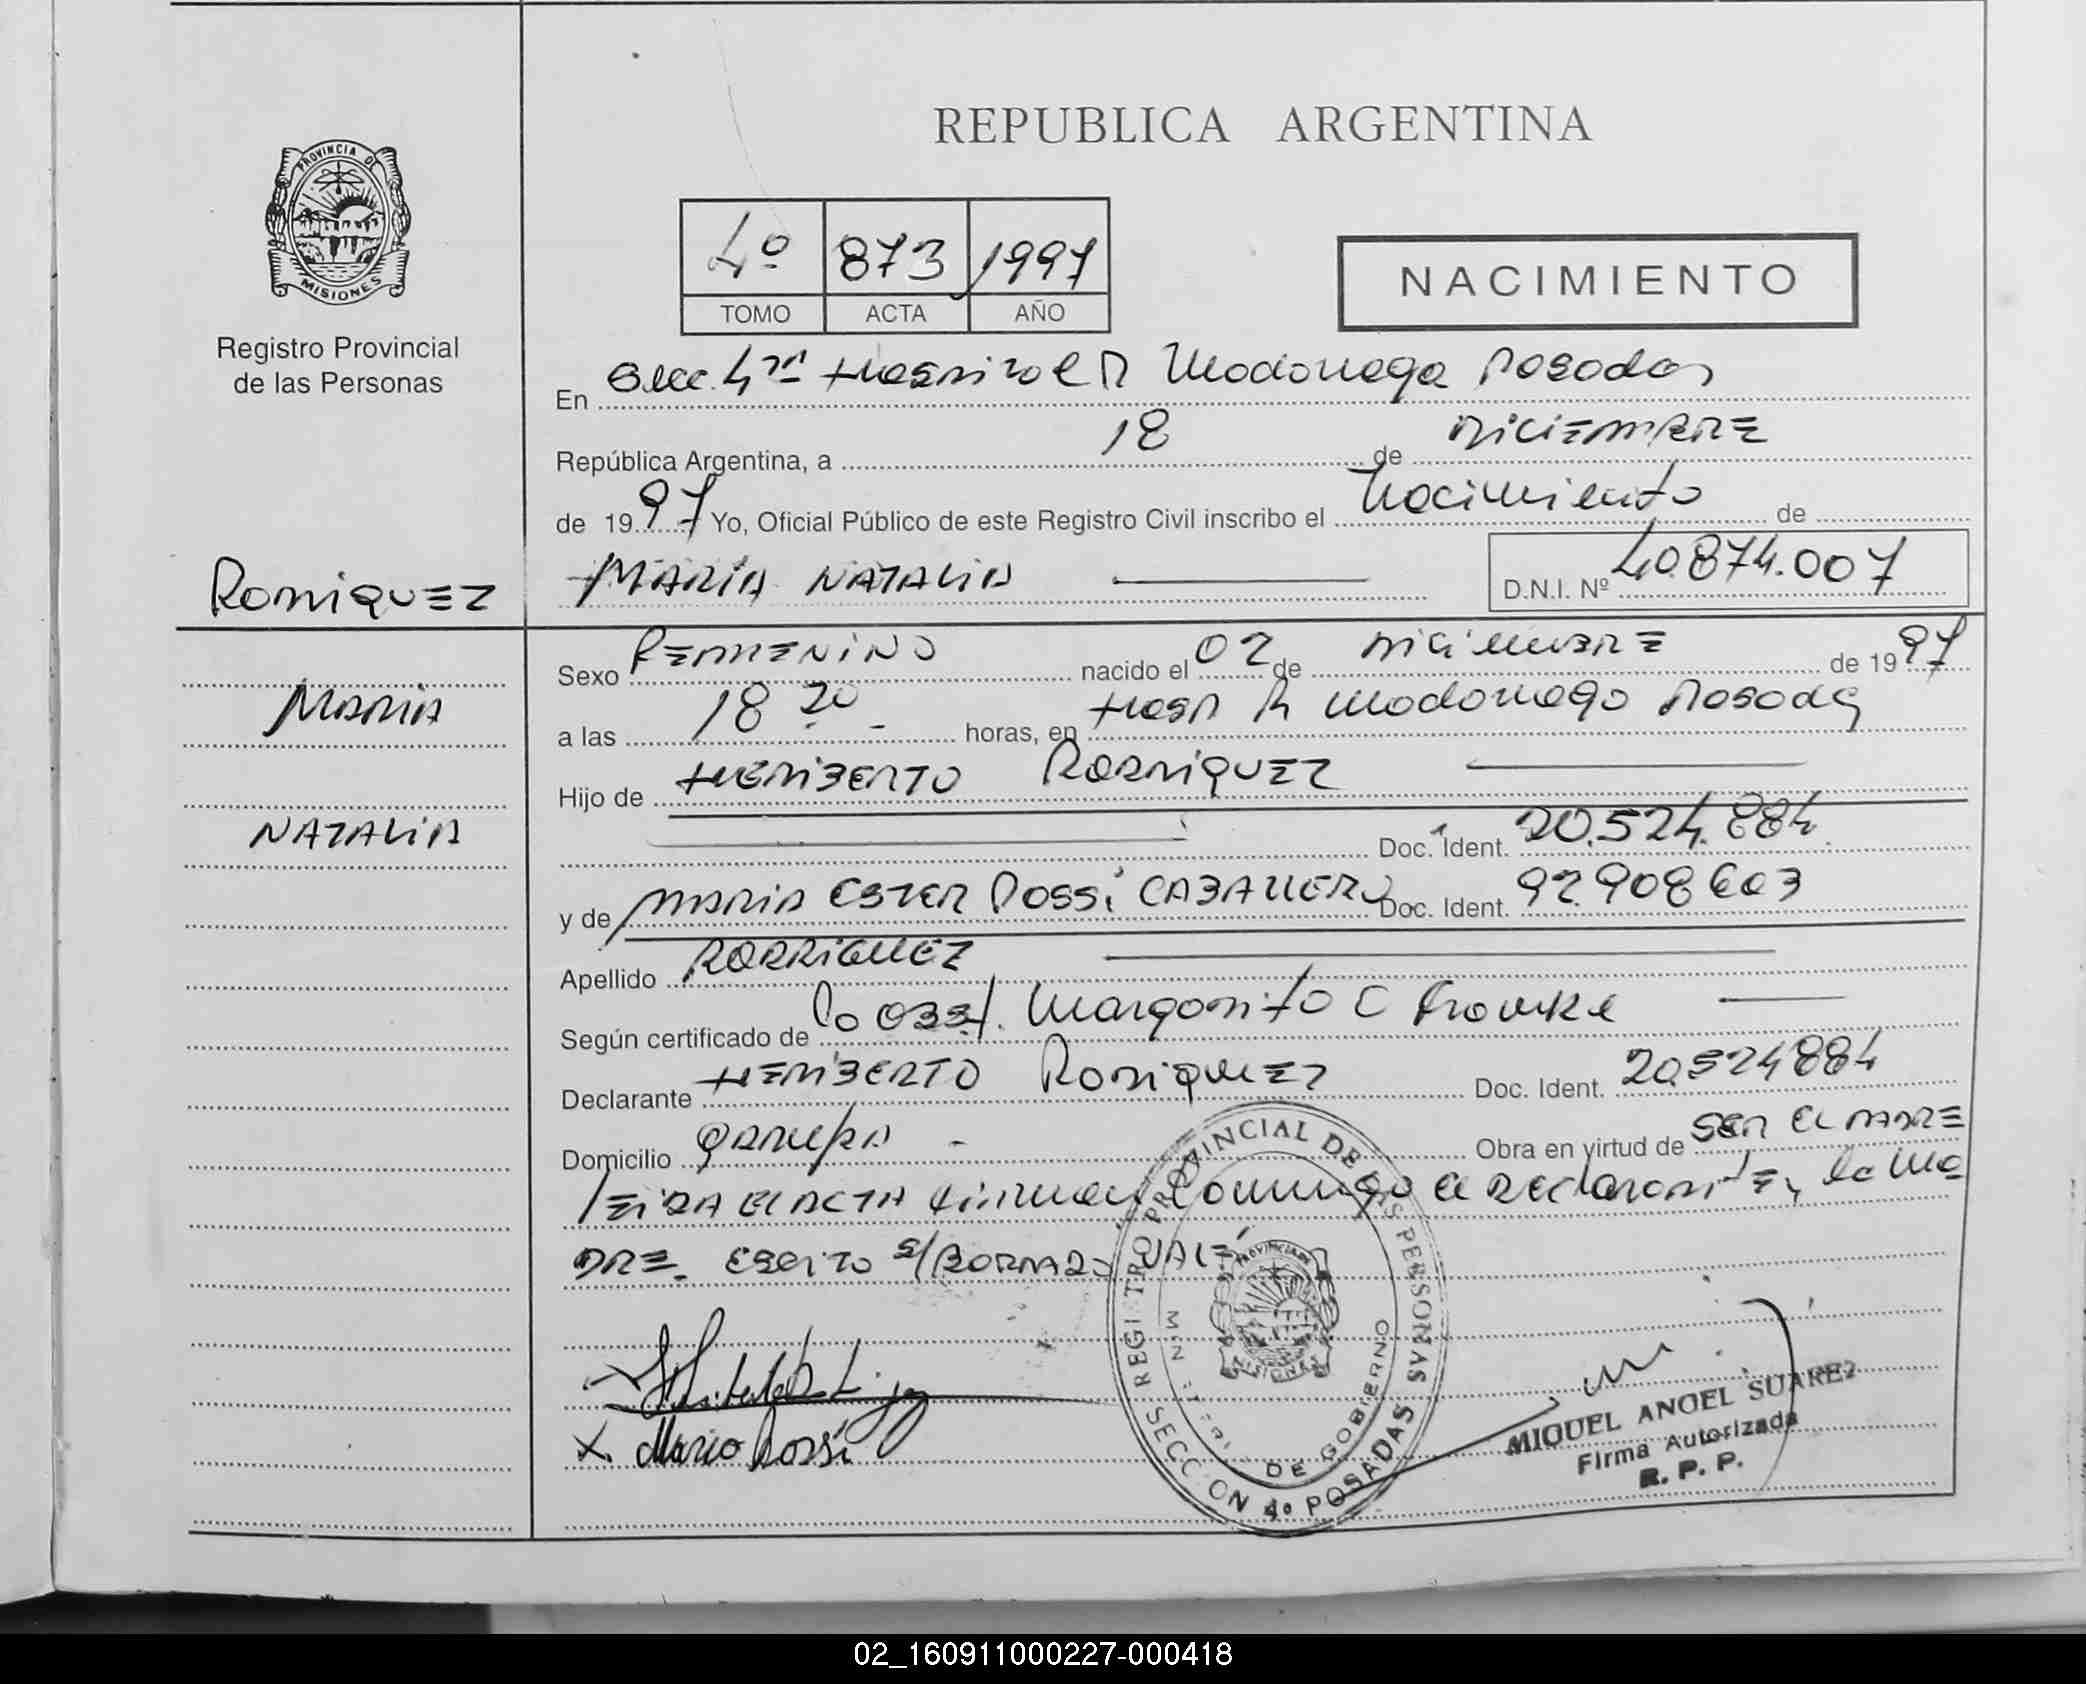 REPUBLICA ARGENTINA
PROVINCIA DE
MISIONES
Registro Provincial
de las Personas
4º 873 1997
TOMO ACTA AÑO
NACIMIENTO
En Secc. 4ta Hospital R Madariaga Posadas
República Argentina, a 18 de DICIEMBRE
de 1997 Yo, Oficial Público de este Registro Civil inscribo el Nacimiento de
RODRIQUEZ
MARIA NATALIA
D.N.I. Nº 40.874.007
MARIA
NATALIA
Sexo FEMENINO nacido el 02 de DICIEMBRE de 1997
a las 18 20 horas, en Hosp R Madariaga Posadas
Hijo de HERIBERTO RODRIQUEZ
Doc. Ident. 20.524.884
y de MARIA ESTER ROSSI CABALLERO Doc. Ident. 92.908603
Apellido RODRIGUEZ
Según certificado de la OBST. Margarita C
Declarante HERIBERTO RODRIQUEZ Doc. Ident. 20.524884
Domicilio GARUPA Obra en virtud de SER EL PADRE
LEIDA EL ACTA firman conmigo el DECLARANTE y la MA
DRE. ESCRITO S/BORRADO VALE
X Maria Rossi
REGISTRO PROVINCIAL DE LAS PERSONAS
SECCION 4º POSADAS
DE GOBIERNO
MIGUEL ANGEL SUAREZ
Firma Autorizada
R. P. P.
02_160911000227-000418